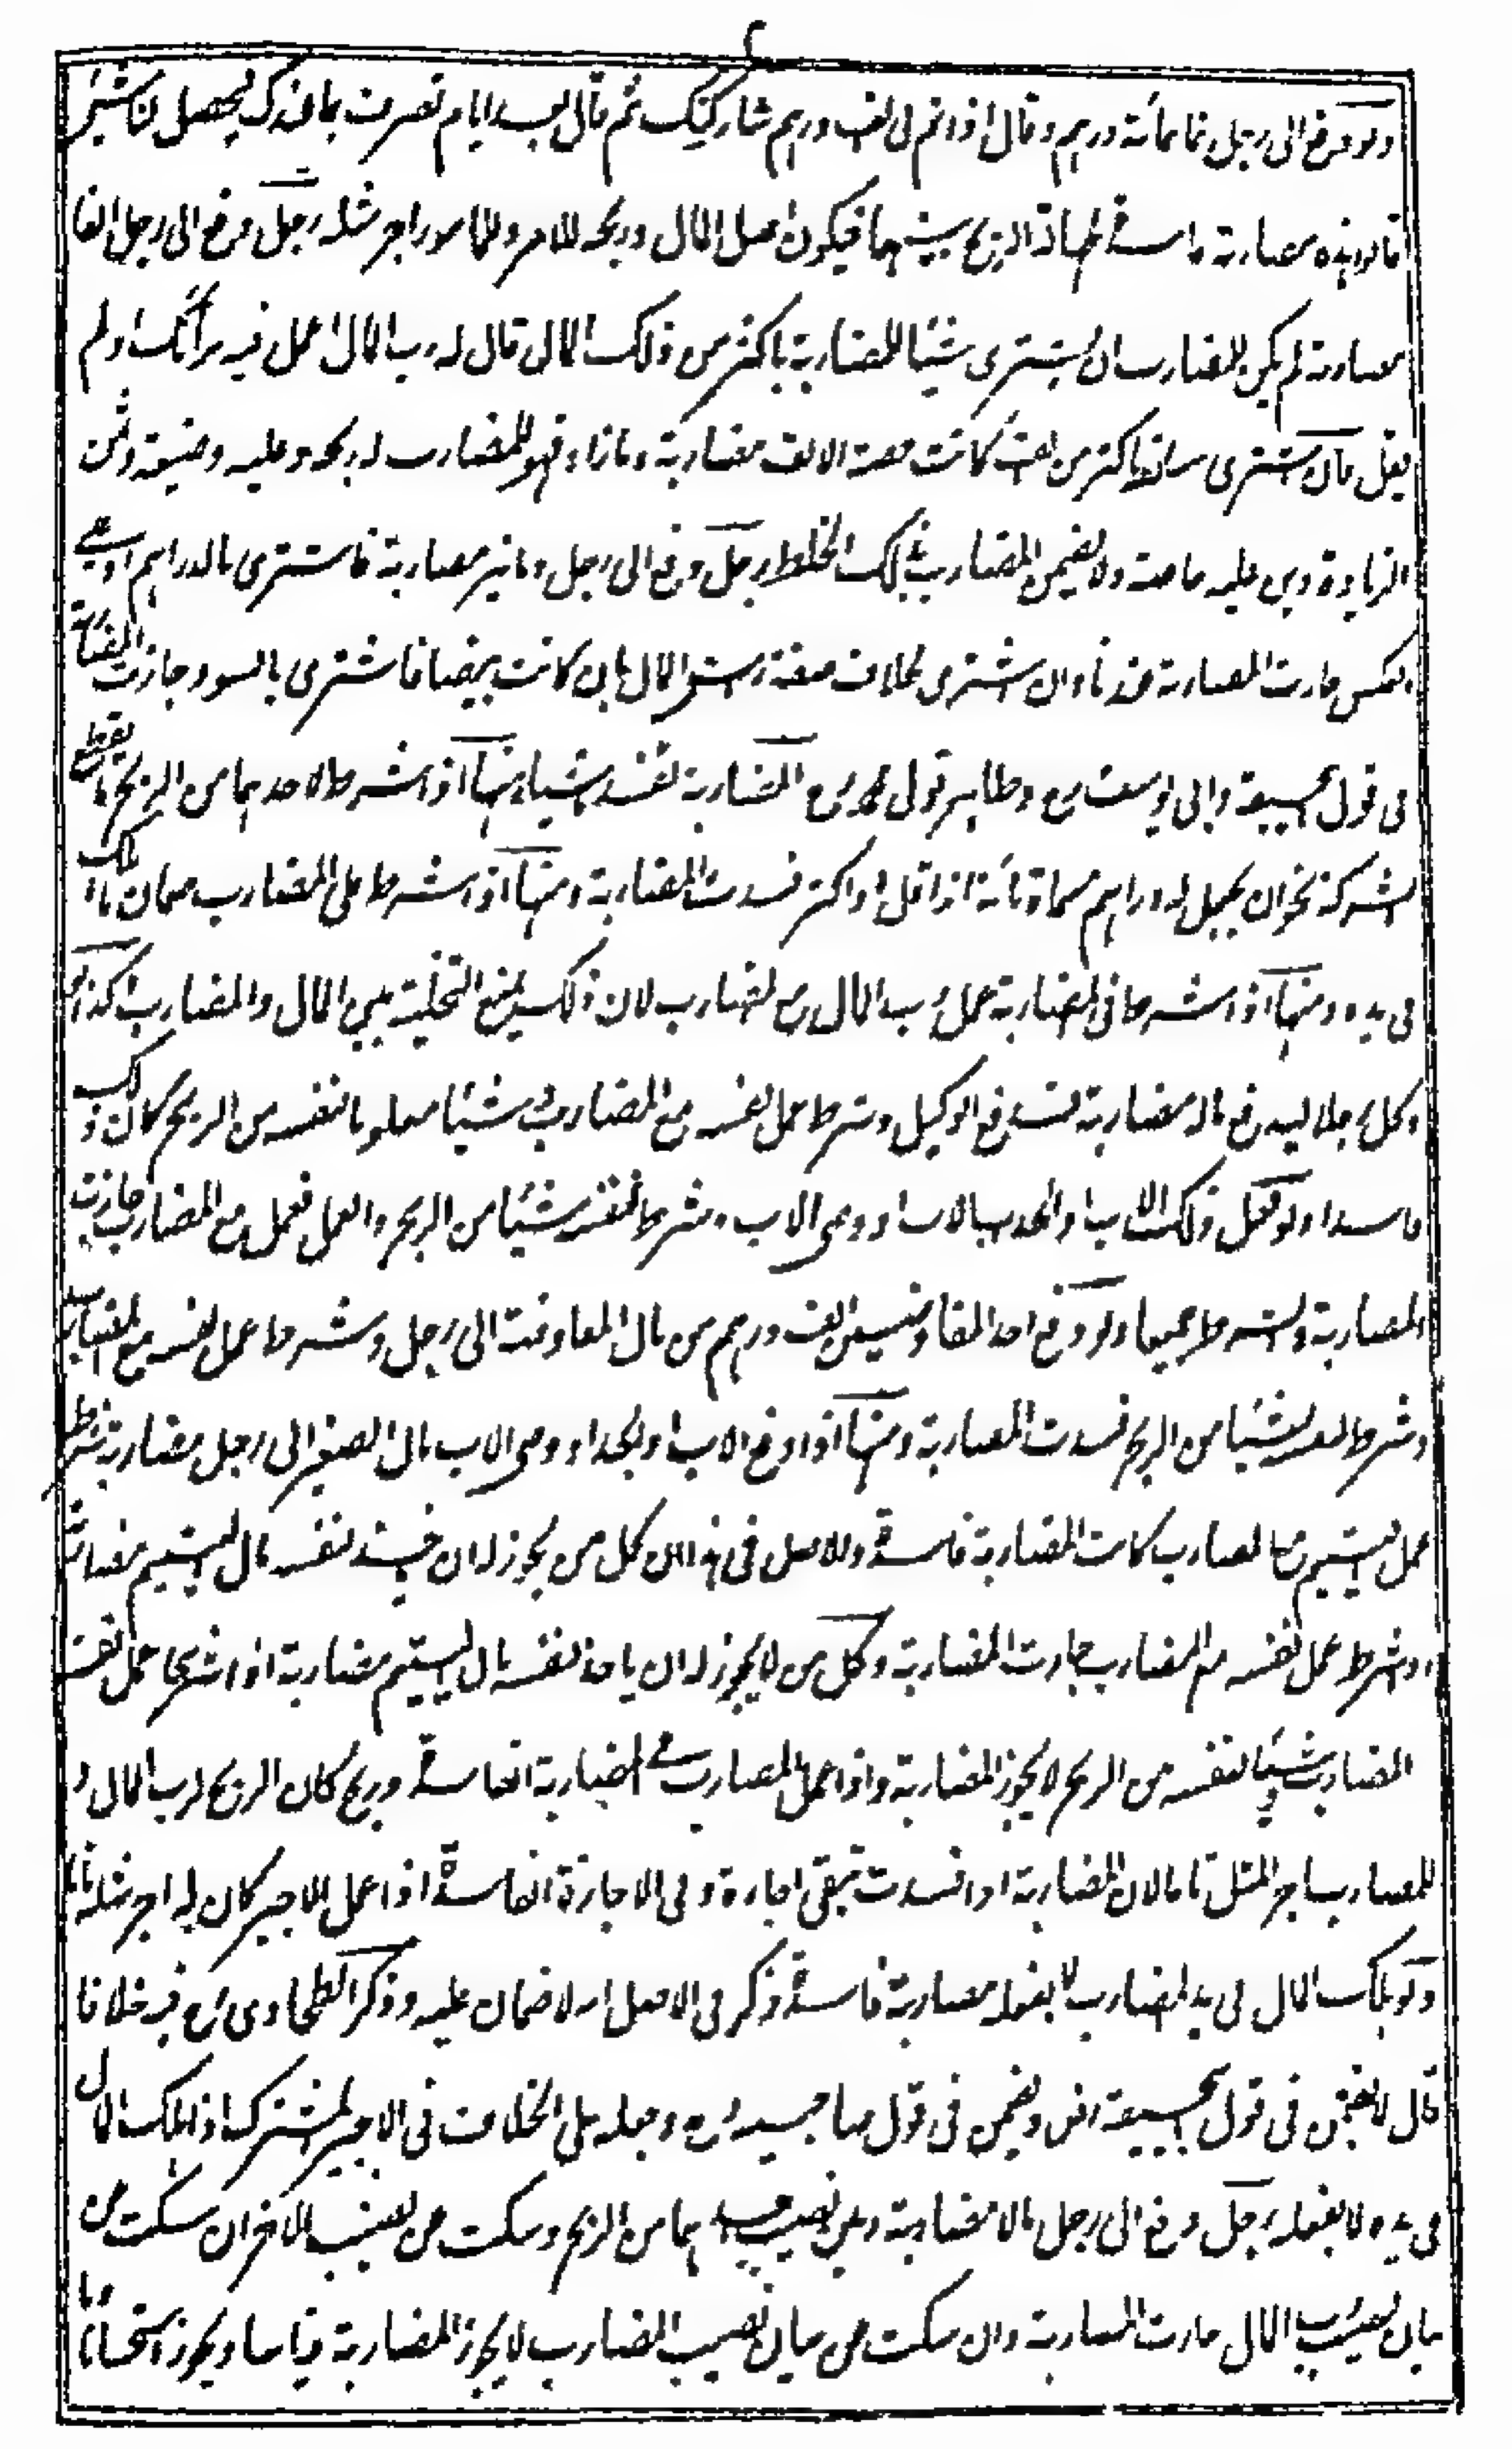 ولو دفع الى رجل ثمانمائة درهم وقال اذا تم لى الف درهم شاركتك ثم قال بعد ايام تصرف بما عندك ليحصل لنا شئ
قالوا هذه مضاربة فاسدة لجهالة الربح بينهما فيكون اصل المال وربحه للامر وللمامور اجر مثله رجل دفع الى رجل الفا
مضاربة لم يكن للمضارب ان يشترى شيئا للمضاربة باكثر من ذلك المال قال له رب المال اعمل فيه برأيك او لم
يقل فان اشترى سلعة باكثر من الف كانت حصة الالف مضاربة وما زاد فهو للمضارب له ربحه وعليه وضيعته وثمن
الزيادة دين عليه خاصة ولا يضمن المضارب بذلك الخلط رجل دفع الى رجل دنانير مضاربة فاشترى بالدراهم او على
العكس جازت المضاربة عندنا وان اشترى بخلاف صفة راس المال بان كانت بيضا فاشترى بالسود جازت المضاربة
فى قول ابى حنيفة وابى يوسف رح وظاهر قول محمد رح المضاربة تفسد باشياء منها اذا شرط لاحدهما من الربح ما يقطع
الشركة نحو ان يجعل له دراهم مسماة مائة او اقل او اكثر فسدت المضاربة ومنها اذا شرط على المضارب ضمان ما هلك
فى يده ومنها اذا شرطا فى المضاربة عمل رب المال مع المضارب لان ذلك يمنع التخلية بين المال والمضارب وكذا لو
وكل رجلا ليدفع ماله مضاربة فدفع الوكيل وشرط عمل نفسه مع المضارب وشيئا معلوما لنفسه من الربح كان ذلك
فاسدا ولو فعل ذلك الاب او الجد اب الاب او وصى الاب وشرط لنفسه شيئا من الربح والعمل فعمل مع المضارب جازت
المضاربة والشرط جميعا ولو دفع احد المتفاوضين الف درهم من مال المفاوضة الى رجل وشرط عمل نفسه مع المضارب
وشرط لنفسه شيئا من الربح فسدت المضاربة ومنها اذا دفع الاب او الجد او وصى الاب مال الصغير الى رجل مضاربة وشرط
عمل اليتيم مع المضارب كانت المضاربة فاسدة والاصل فى هذا ان كل من يجوز له ان ياخذ لنفسه مال اليتيم مضاربة
اذا شرط عمل نفسه مع المضارب جازت المضاربة وكل من لا يجوز له ان ياخذ لنفسه مال اليتيم مضاربة اذا شرط عمل نفسه مع
المضارب وشيئا لنفسه من الربح لا يجوز المضاربة واذا عمل المضارب فى المضاربة الفاسدة وربح كان الربح لرب المال و
للمضارب اجر المثل تاما لان المضاربة اذا فسدت تبقى اجارة وفى الاجارة الفاسدة اذا عمل الاجير كان له اجر مثله تاما
ولو هلك المال فى يد المضارب لا بفعله مضاربة فاسدة ذكر فى الاصل انه لا ضمان عليه وذكر الطحاوى رح فيه خلافا
قال لا يضمن فى قول ابى حنيفة رض ويضمن فى قول صاحبيه رح وجعله على الخلاف فى الاجير المشترك اذا هلك المال
فى يده لا بفعله رجل دفع الى رجل مالا مضاربة وبين نصيب احدهما من الربح وسكت عن نصيب الاخر ان سكت عن
بيان نصيب رب المال جازت المضاربة وان سكت عن بيان نصيب المضارب لا يجوز المضاربة قياسا ويجوز استحسانا وما